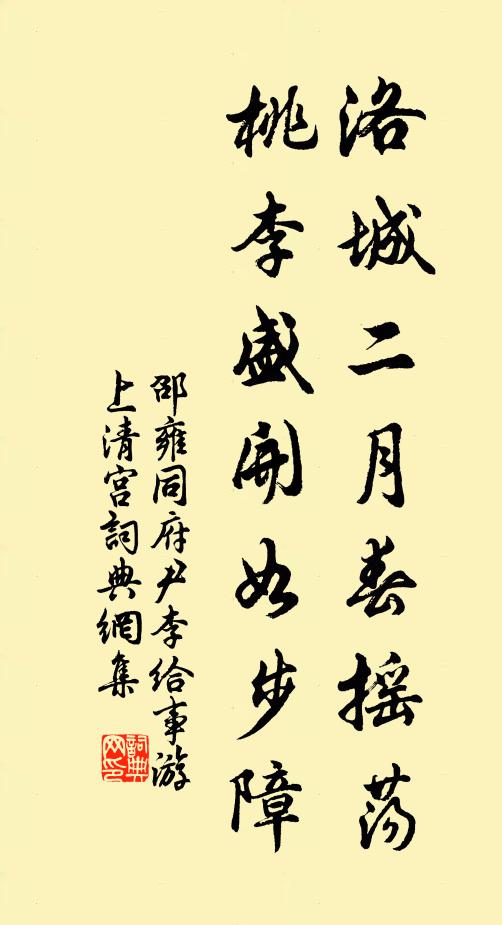 洛城二月春摇荡
桃李盛開如步障
邵雍同府尹李给事游
上清宫詞典網集
詞典網印